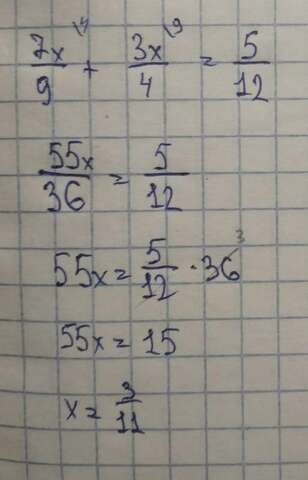 7x/9 \4 + 3x/4 \9 = 5/12
55x/36 = 5/12
55x = 5/12 · 36 3
55x = 15
x = 3/11